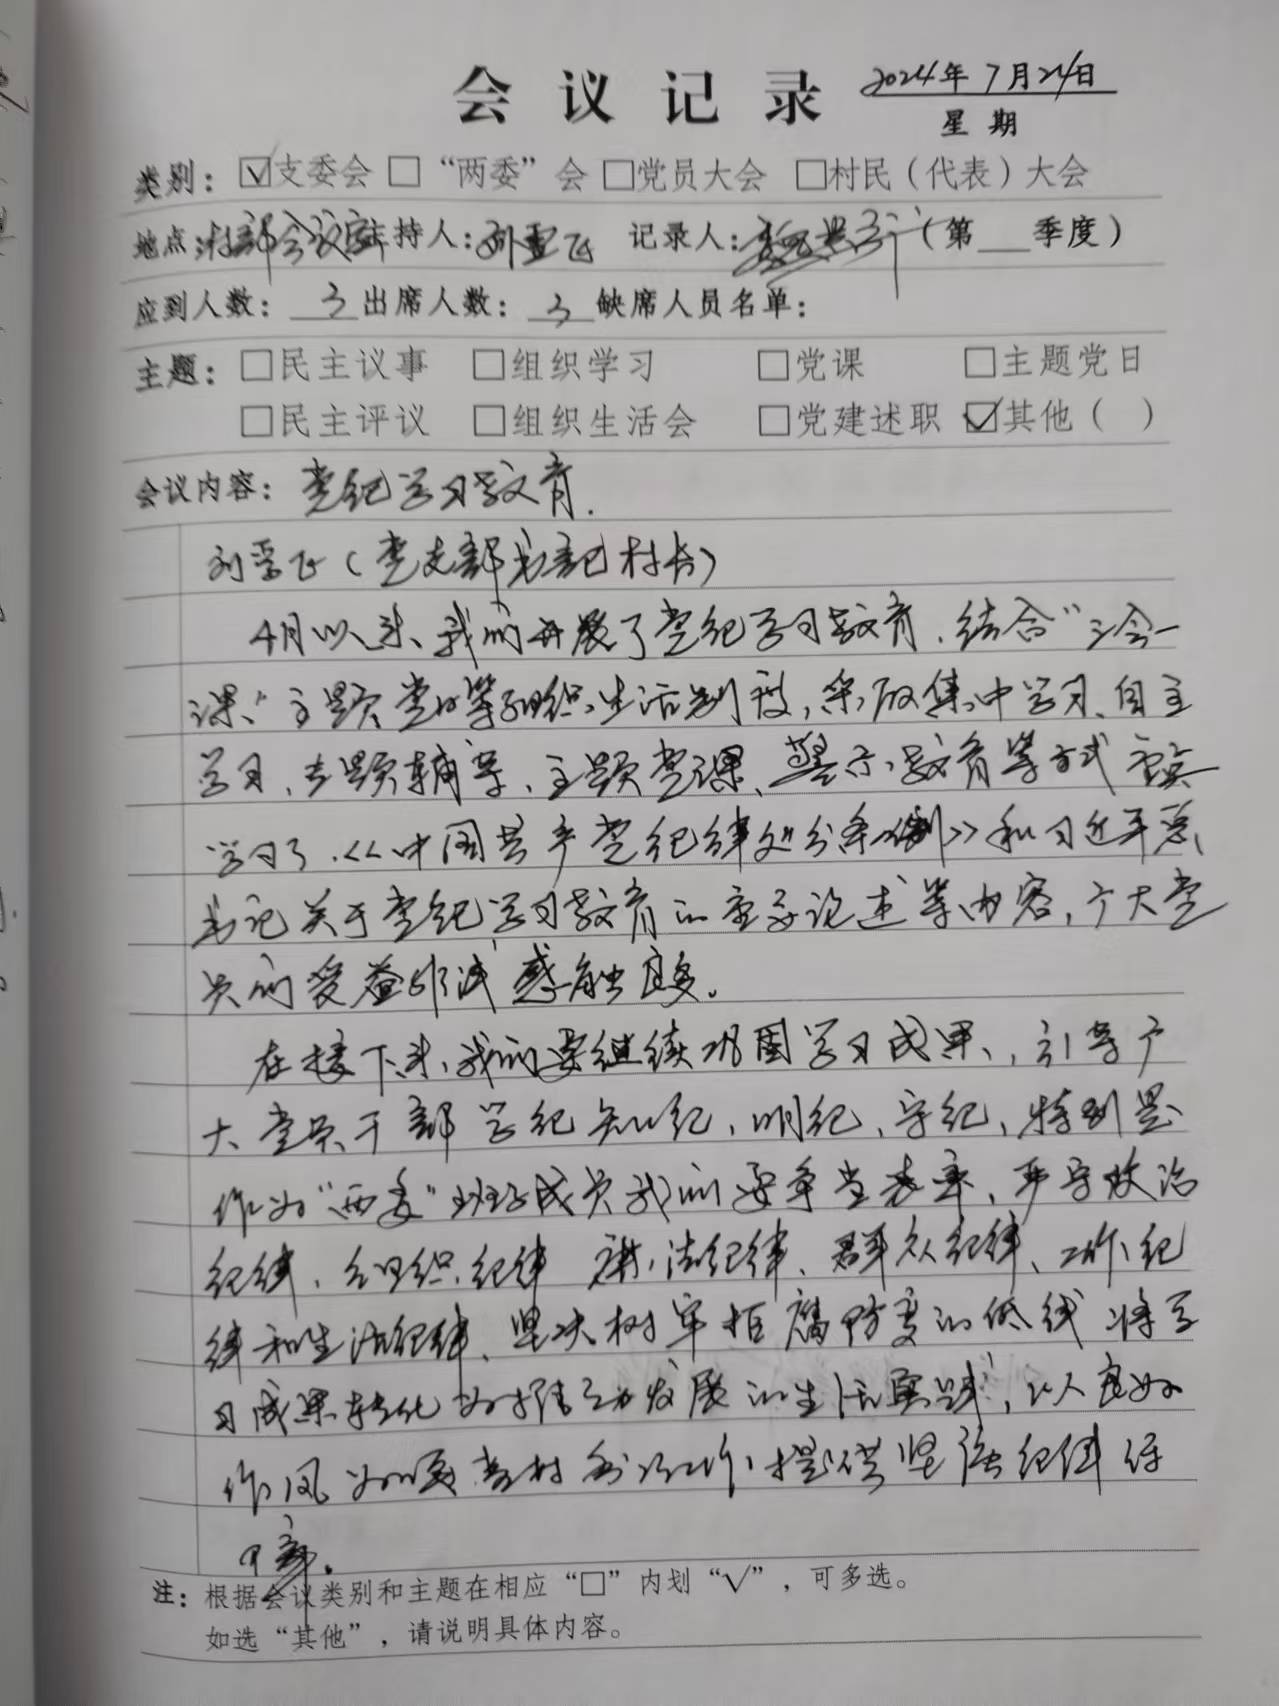 会议记录 2024年7月24日
星期
类别：☑支委会 □“两委”会 □党员大会 □村民（代表）大会
地点：村部会议室 主持人： 记录人： （第 季度）
应到人数：3 出席人数：3 缺席人员名单：
主题：□民主议事 □组织学习 □党课 □主题党日
□民主评议 □组织生活会 □党建述职 ☑其他（ ）
会议内容：党纪学习教育.
（党支部书记 村长）
4月以来、我们开展了党纪学习教育，结合“三会一
课”、主题党日等组织生活制度，采取集中学习、自主
学习、专题辅导、主题党课、警示教育等方式
学习了《中国共产党纪律处分条例》和习近平总
书记关于党纪学习教育的重要论述等内容，广大党
员们受益匪浅 感触良多。
在接下来，我们要继续巩固学习成果，引导广
大党员干部学纪、知纪、明纪、守纪，特别是
作为“两委”班子成员我们要争当表率，严守政治
纪律、组织纪律 廉洁纪律、群众纪律、工作纪
律和生活纪律、坚决树牢拒腐防变的底线 将学
习成果转化为推动发展的生活实践，以良好
作风为 村 工作提供坚强纪律保
障。
注：根据会议类别和主题在相应“□”内划“√”，可多选。
如选“其他”，请说明具体内容。